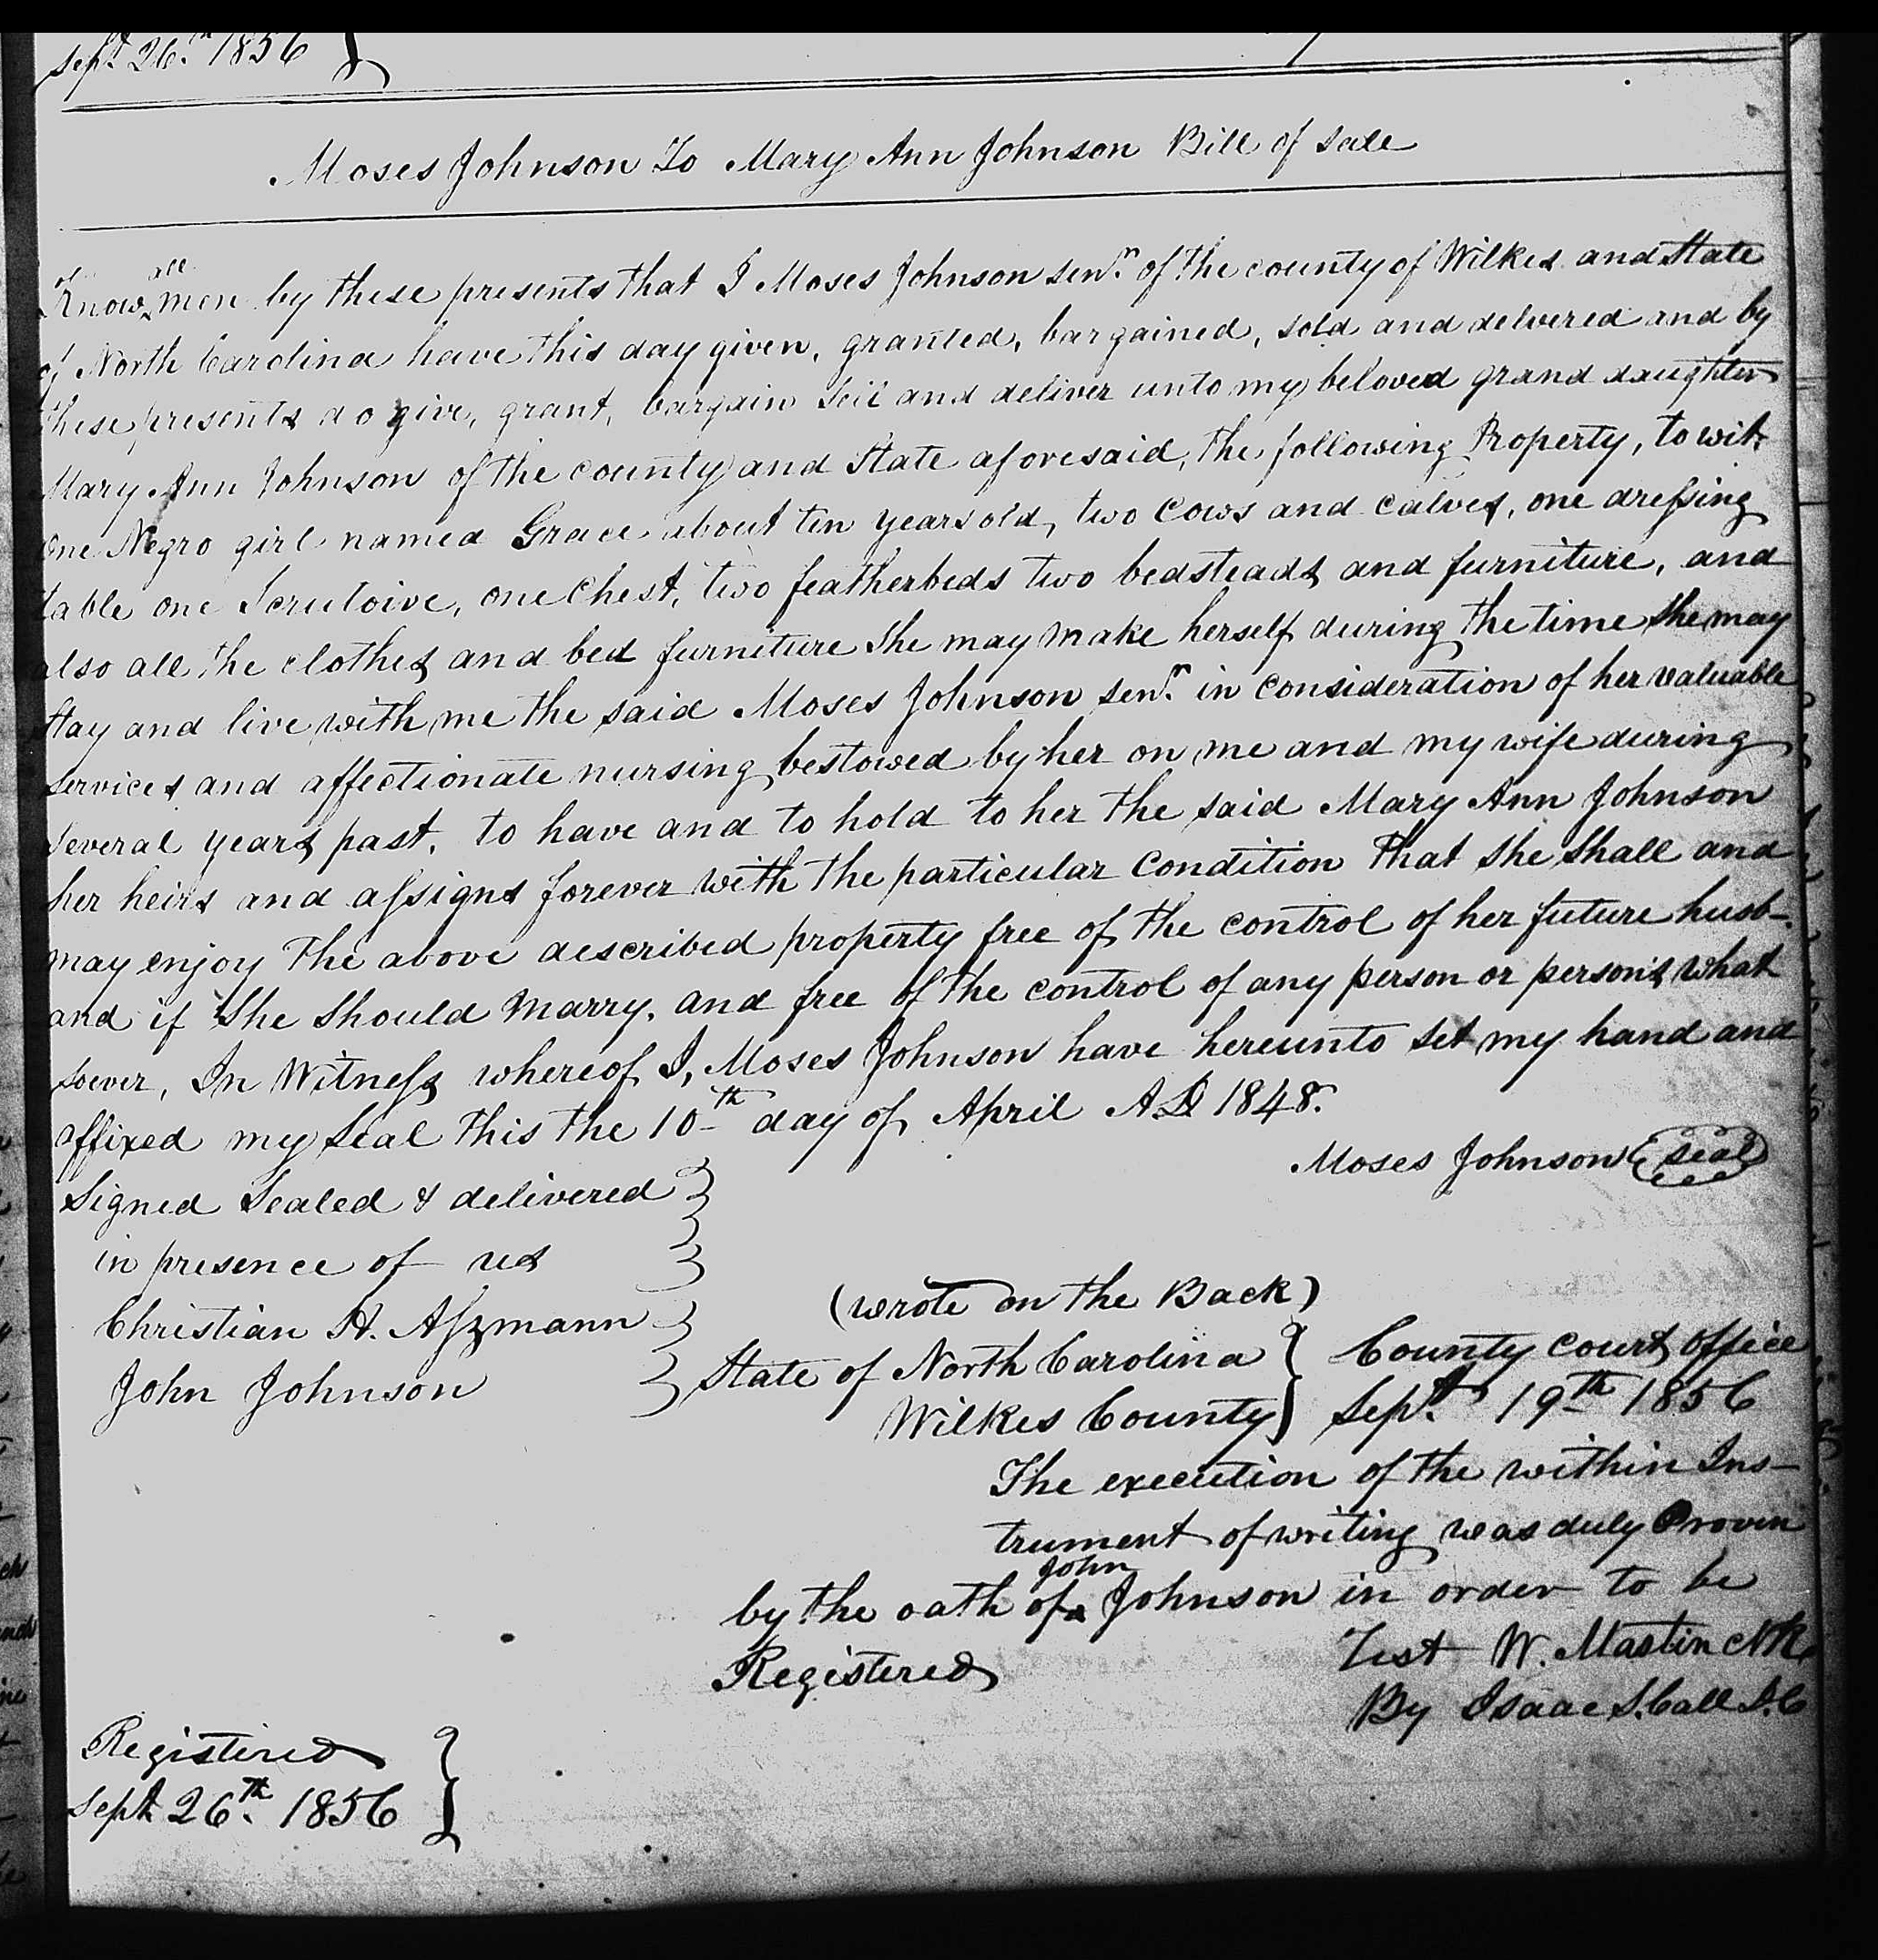 Sept 26th 1856
Moses Johnson To Mary Ann Johnson Bill of Sale
Know all men by these presents that I Moses Johnson senr. of the county of Wilkes and State
of North Carolina have this day given, granted, bargained, sold and delvered and by
these presents do give, grant, bargain sell and deliver unto my beloved grand daughter
Mary Ann Johnson of the county and State aforesaid, the following Property, to wit
One Negro girl named Grace about ten years old, two cows and calves, one dressing
table one Scrutoire, one Chest, two featherbeds two bedsteads and furniture, and
also all the clothes and bed furniture She may make herself during the time She may
Stay and live with me the said Moses Johnson senr. in consideration of her valuable
services and affectionate nursing bestowed by her on me and my wife during
Several years past, to have and to hold to her the said Mary Ann Johnson
her heirs and assigns forever with the particular condition that She Shall and
may enjoy the above described property free of the control of her future husb-
and if She Should marry, and free of the control of any person or persons what
soever, In Witness whereof I, Moses Johnson have hereunto set my hand and
affixed my Seal this the 10th day of April AD 1848.
Moses Johnson seal
Signed Sealed & delivered
in presence of us
Christian H. Assmann
John Johnson
(wrote on the Back)
State of North Carolina County court office
Wilkes County Sept. 19th 1856
The execution of the within Ins-
trument of writing was duly Proven
by the oath of John Johnson in order to be
Registered
Test W. Mastin Clk
By Isaac S. Call D.C
Registered
Sept 26th. 1856